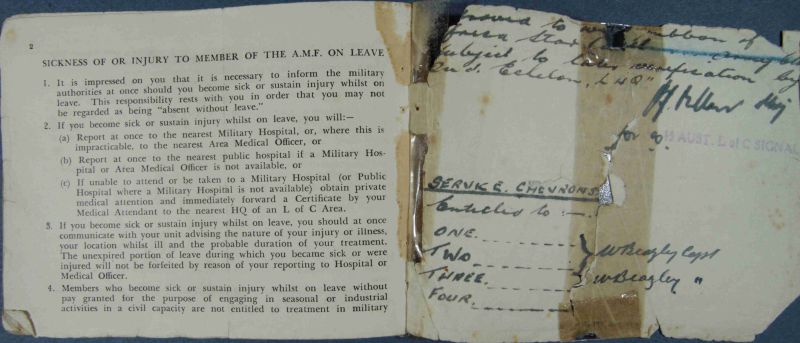 2
SICKNESS OF OR INJURY TO MEMBER OF THE A.M.F. ON LEAVE
1. It is impressed on you that it is necessary to inform the military
authorities at once should you become sick or sustain injury whilst on
leave. This responsibility rests with you in order that you may not
be regarded as being "absent without leave."
2. If you become sick or sustain injury whilst on leave, you will:—
(a) Report at once to the nearest Military Hospital, or, where this is
impracticable, to the nearest Area Medical Officer, or
(b) Report at once to the nearest public hospital if a Military Hos-
pital or Area Medical Officer is not available, or
(c) If unable to attend or be taken to a Military Hospital (or Public
Hospital where a Military Hospital is not available) obtain private
medical attention and immediately forward a Certificate by your
Medical Attendant to the nearest HQ of an L of C Area.
3. If you become sick or sustain injury whilst on leave, you should at once
communicate with your unit advising the nature of your injury or illness,
your location whilst ill and the probable duration of your treatment.
The unexpired portion of leave during which you became sick or were
injured will not be forfeited by reason of your reporting to Hospital or
Medical Officer.
4. Members who become sick or sustain injury whilst on leave without
pay granted for the purpose of engaging in seasonal or industrial
activities in a civil capacity are not entitled to treatment in military
to ribbon of
Africa Star
subject to later verification by
2nd. Echelon, LHQ"
for
AUST. L of C SIGNAL
SERVICE CHEVRONS
Entitled to :—
ONE.
TWO W Beazley Capt
THREE. W Beazley "
FOUR.